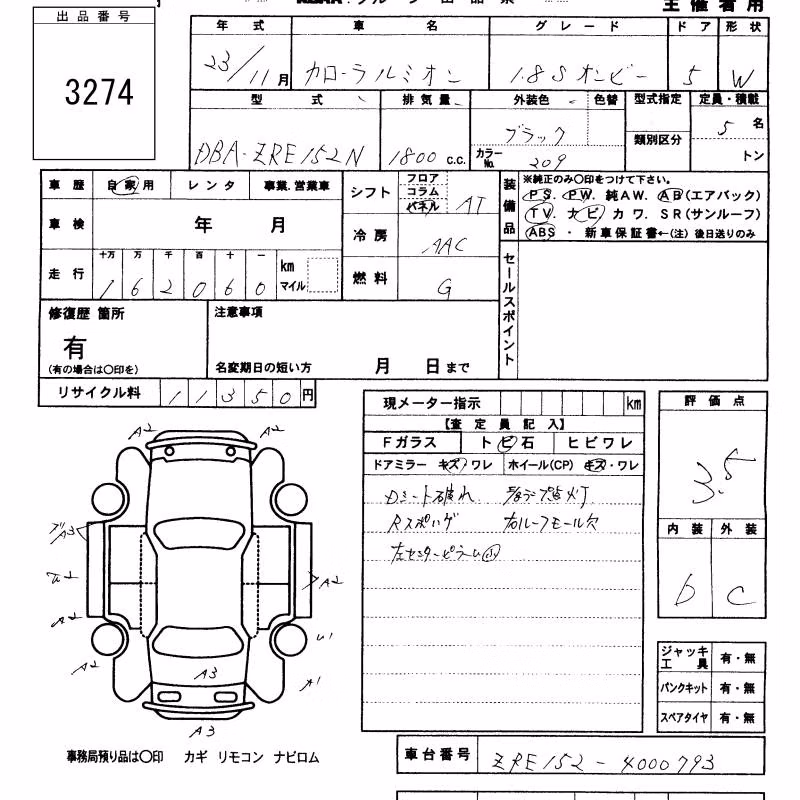 主催者用
出品番号
3274
年式 車名 グレード ドア 形状
23/11月 カローラルミオン 1.8S オンビー 5 W
型式 排気量 外装色 色替 型式指定 定員・積載
類別区分
DBA-ZRE152N 1800 c.c. ブラック カラーNo. 209 5名
トン
車歴 自家用 レンタ 事業.営業車
シフト フロア コラム パネル AT
装備品 ※純正のみ〇印をつけて下さい。
PS. PW. 純AW. AB(エアバック)
TV. ナビ カワ. SR(サンルーフ)
ABS ・ 新車保証書←(注) 後日送りのみ
車検 年 月
冷房 AAC
走行 十万 万 千 百 十 一
162060 km マイル
燃料 G
セールスポイント
修復歴 箇所
有
(有の場合は〇印を)
注意事項
名変期日の短い方 月 日まで
リサイクル料 11350円
現メーター指示 km
【査定員記入】
Fガラス トビ石 ヒビワレ
ドアミラー キズ/ワレ ホイール(CP) キズ・ワレ
Dシート破れ
Rスポハゲ 右ルーフモール欠
左センターピラー
評価点
3.5
内装 外装
b C
A2 A2
A3
A2
A2
A2
A2
A3
A1
A3
ジャッキ工具 有・無
パンクキット 有・無
スペアタイヤ 有・無
事務局預り品は〇印 カギ リモコン ナビロム
車台番号 ZRE152-4000793